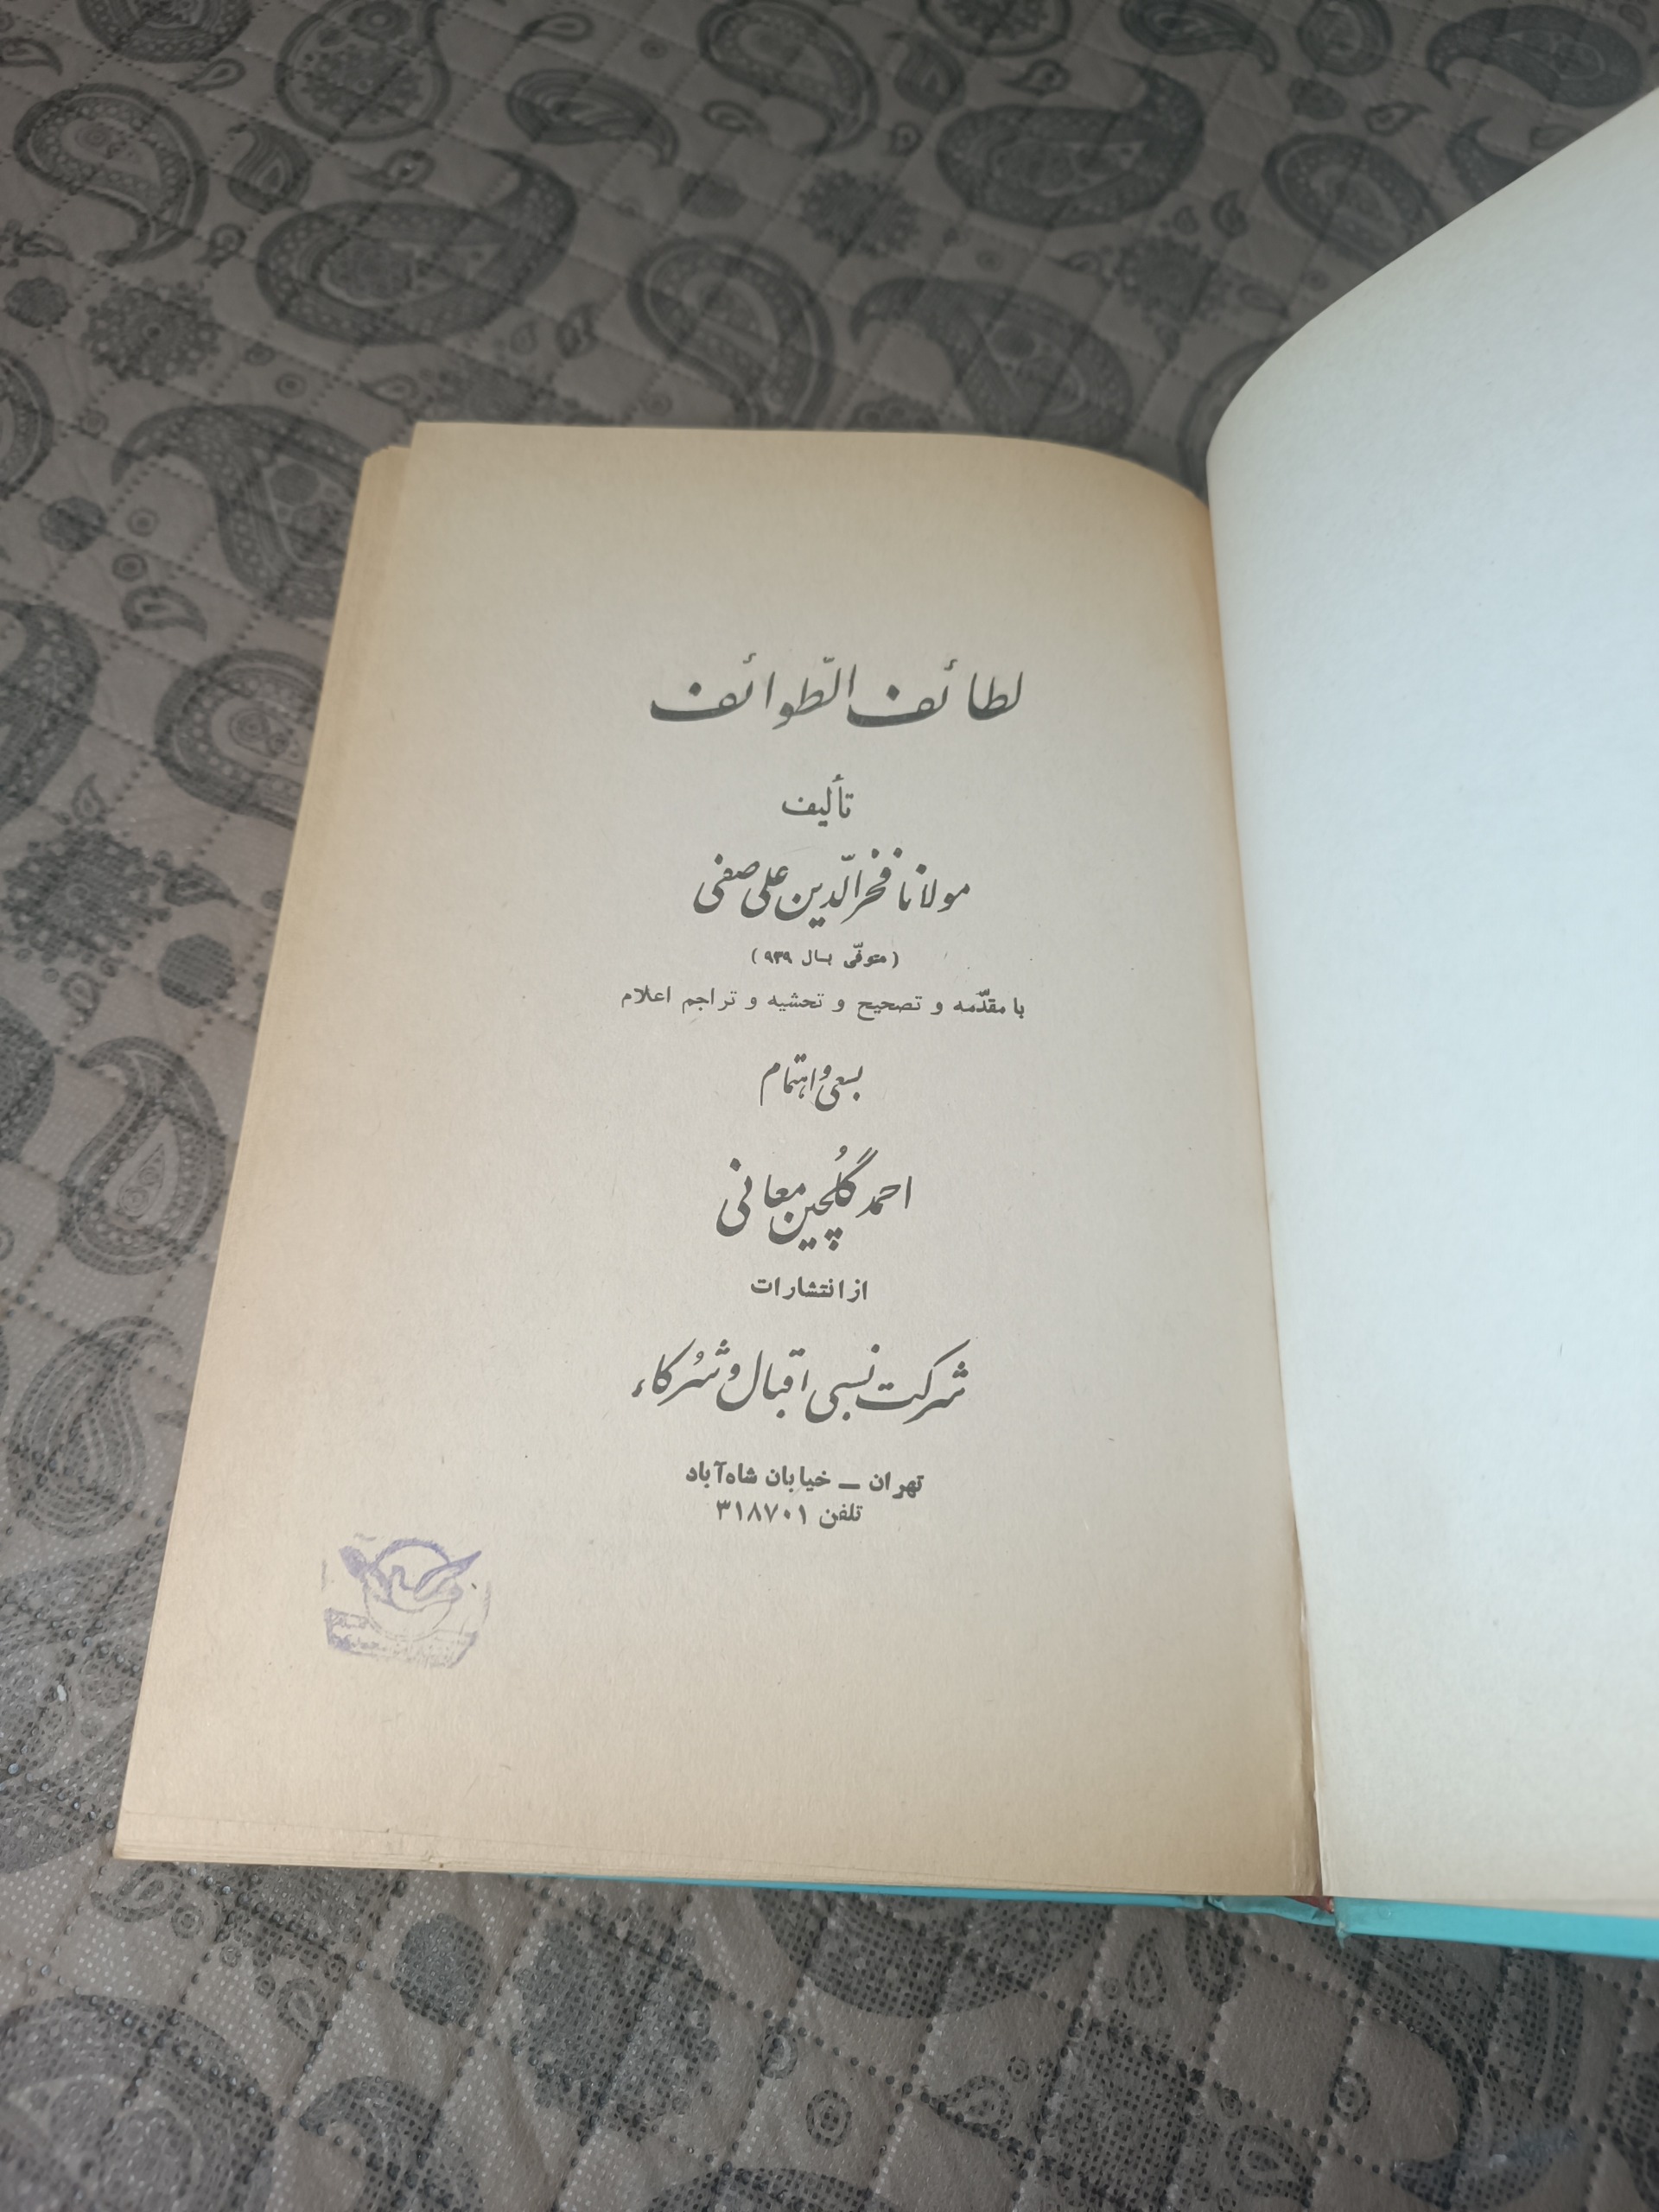 لطائف الطّوائف
تألیف
مولانا فخرالدّین علی صفی
(متوفّی بسال ۹۳۹)
با مقدّمه و تصحیح و تحشیه و تراجم اعلام
بسعی و اهتمام
احمد گلچین معانی
از انتشارات
شرکت نسبی اقبال و شُرکاء
تهران – خیابان شاه‌آباد
تلفن ۳۱۸۷۰۱